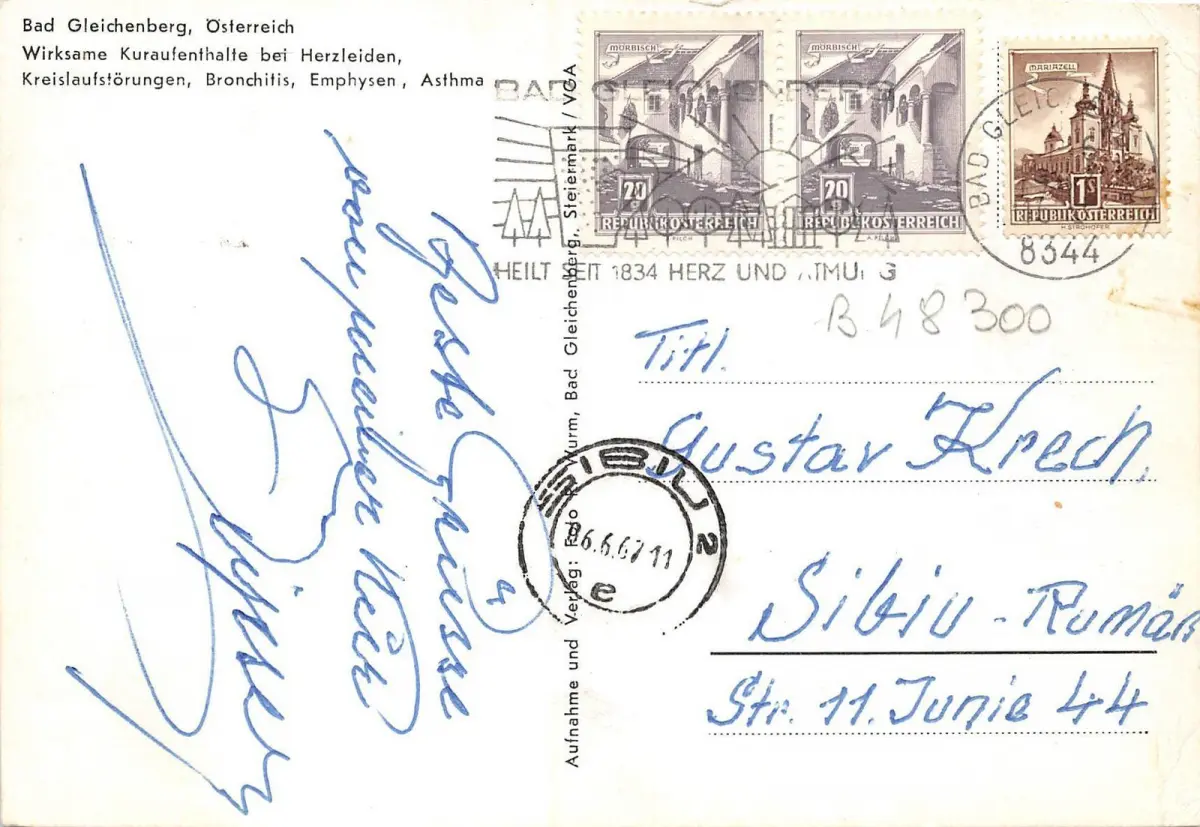 Bad Gleichenberg, Österreich
Wirksame Kuraufenthalte bei Herzleiden,
Kreislaufstörungen, Bronchitis, Emphysen, Asthma
MÖRBISCH
20
REPUBLIK ÖSTERREICH
MÖRBISCH
20
REPUBLIK ÖSTERREICH
MARIAZELL
1S
REPUBLIK ÖSTERREICH
BAD GLEICHENBERG
HEILT SEIT 1834 HERZ UND ATMUNG
BAD GLEIC
8344
B 48 300
Beste Grüsse
Titl.
Gustav Krech.
Sibiu - Rumän
Str. 11. Junie 44
SIBIU 2
6.6.67 11
e
Aufnahme und Verlag: Wurm, Bad Gleichenberg, Steiermark / VGA